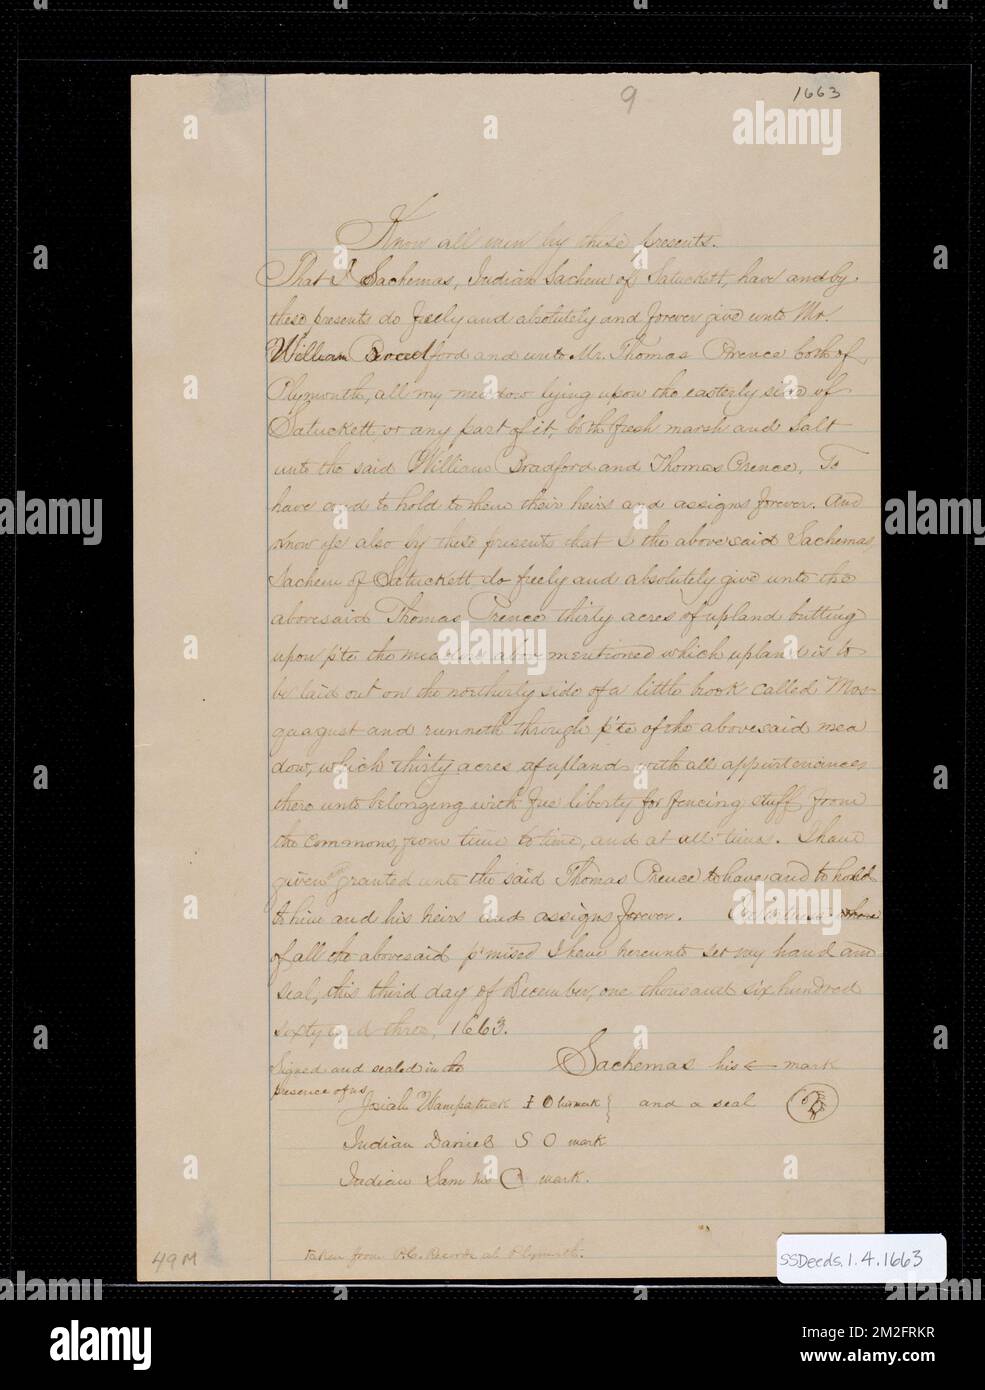 9
1663
Know all men by these presents.
That I Sachemas, Indian Sachem of Satuckett, have and by
these presents do freely and absolutely and forever give unto Mr.
William Bradford and unto Mr. Thomas Prence both of
Plymouth, all my meadow lying upon the easterly side of
Satuckett, or any part of it, both fresh marsh and Salt
unto the said William Bradford and Thomas Prence, To
have and to hold to them their heirs and assigns forever. And
know ye also by these presents that I the abovesaid Sachemas,
Sachem of Satuckett do freely and absolutely give unto the
abovesaid Thomas Prence thirty acres of upland butting
upon p'te the meadow above mentioned which upland is to
be laid out on the northerly side of a little brook called Mas-
quagust and runneth through p'te of the abovesaid mea
dow, which thirty acres of upland with all appurtenances
there unto belonging with free liberty for fencing stuff from
the commons, from time to time, and at all times. I have
given and granted unto the said Thomas Prence to have and to hold
to him and his heirs and assigns forever. In witness whereof
of all the abovesaid p'mised I have hereunto set my hand and
seal, this third day of December, one thousand six hundred
sixty and three, 1663.
Signed and sealed in the Sachemas his mark
presence of us
Josiah Wampatuck I O his mark } and a seal
Indian Daniel S O mark
Indian Sam his mark.
taken from O.C. Records at Plymouth.
49M
SSDeeds.1.4.1663
alamy
Image ID: 2M2FRKR
www.alamy.com